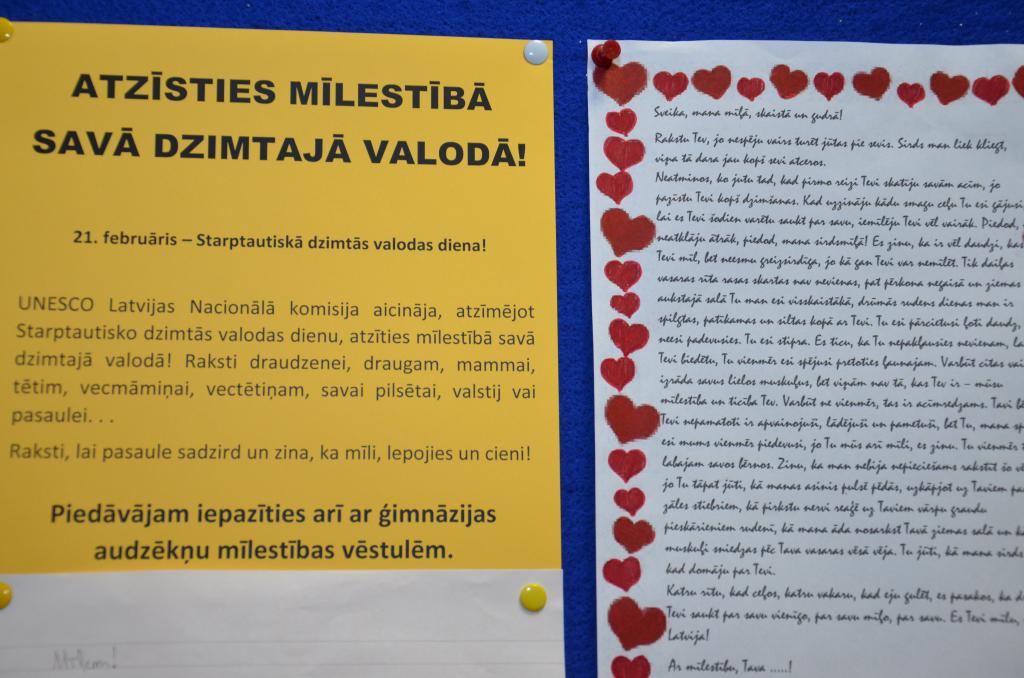 ATZĪSTIES MĪLESTĪBĀ
SAVĀ DZIMTAJĀ VALODĀ!
21. februāris – Starptautiskā dzimtās valodas diena!
UNESCO Latvijas Nacionālā komisija aicināja, atzīmējot
Starptautisko dzimtās valodas dienu, atzīties mīlestībā savā
dzimtajā valodā! Raksti draudzenei, draugam, mammai,
tētim, vecmāmiņai, vectētiņam, savai pilsētai, valstij vai
pasaulei. . .
Raksti, lai pasaule sadzird un zina, ka mīli, lepojies un cieni!
Piedāvājam iepazīties arī ar ģimnāzijas
audzēkņu mīlestības vēstulēm.
Sveika, mana mīļā, skaistā un gudrā!
Rakstu Tev, jo nespēju vairs turēt jūtas pie sevis. Sirds man liek kliegt,
viņa tā dara jau kopš sevi atceros.
Neatminos, ko jutu tad, kad pirmo reizi Tevi skatīju savām acīm, jo
pazīstu Tevi kopš dzimšanas. Kad uzzināju kādu smagu ceļu Tu esi gājusi
lai es Tevi šodien varētu saukt par savu, iemīlēju Tevi vēl vairāk. Piedod,
neatklāju ātrāk, piedod, mana sirdsmīļā! Es zinu, ka ir vēl daudzi, kas
Tevi mīl, bet neesmu greizsirdīga, jo kā gan Tevi var nemīlēt. Tik daiļas
vasaras rīta rasas skartas nav nevienas, pat pērkona negaisā un ziemas
aukstajā salā Tu man esi visskaistākā, drūmās rudens dienas man ir
spilgtas, patīkamas un siltas kopā ar Tevi. Tu esi pārcietusi ļoti daudz,
neesi padevusies. Tu esi stipra. Es ticu, ka Tu nepakļausies nevienam, la
Tevi biedētu, Tu vienmēr esi spējusi pretoties ļaunajam. Varbūt citas vai
izrāda savus lielos muskuļus, bet viņām nav tā, kas Tev ir – mūsu
mīlestība un ticība Tev. Varbūt ne vienmēr, tas ir acīmredzams. Tavi bē
Tevi nepamatoti ir apvainojuši, lādējuši un pametuši, bet Tu, mana sp
esi mums vienmēr piedevusi, jo Tu mūs arī mīli, es zinu. Tu vienmēr t
labajam savos bērnos. Zinu, ka man nebija nepieciešams rakstīt šo vē
jo Tu tāpat jūti, kā manas asinis pulsē pēdās, uzkāpjot uz Taviem pa
zāles stiebriem, kā pirkstu nervi reaģē uz Taviem vārpu graudu
pieskārieniem rudenī, kā mana āda nosarkst Tavā ziemas salā un kā
muskuļi sniedzas pēc Tava vasaras vēsā vēja. Tu jūti, kā mana sirds
kad domāju par Tevi.
Katru rītu, kad ceļos, katru vakaru, kad eju gulēt, es pasakos, ka d
Tevi saukt par savu vienīgo, par savu mīļo, par savu. Es Tevi mīlu,
Latvija!
Ar mīlestību, Tava .....!